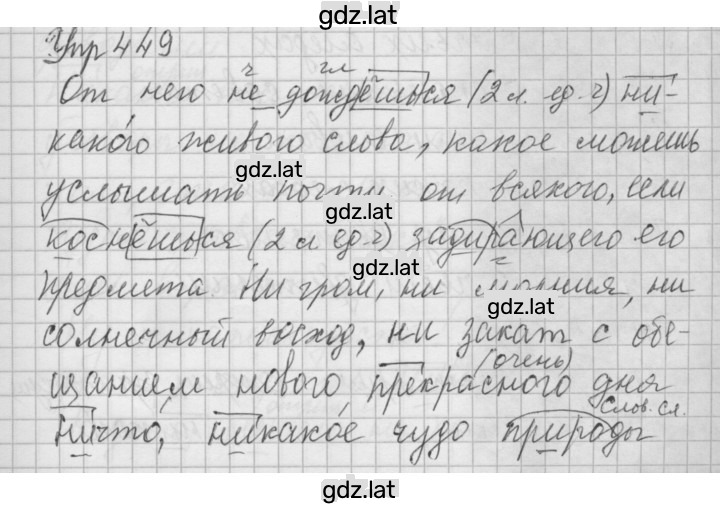 gdz.lat
Упр 449
ч гл
От него не дождёшься (2 л. ед. ч) ни-
какого живого слова, какое можешь
gdz.lat
услышать почти от всякого, если
gdz.lat
коснёшься (2 л ед. ч) задирающего его
gdz.lat
предмета. Ни гром, ни молния, ни
gdz.lat
солнечный восход, ни закат с обе-
(очень)
щанием нового прекрасного дня
Слов. сл.
ничто, никакое чудо природы
gdz.lat